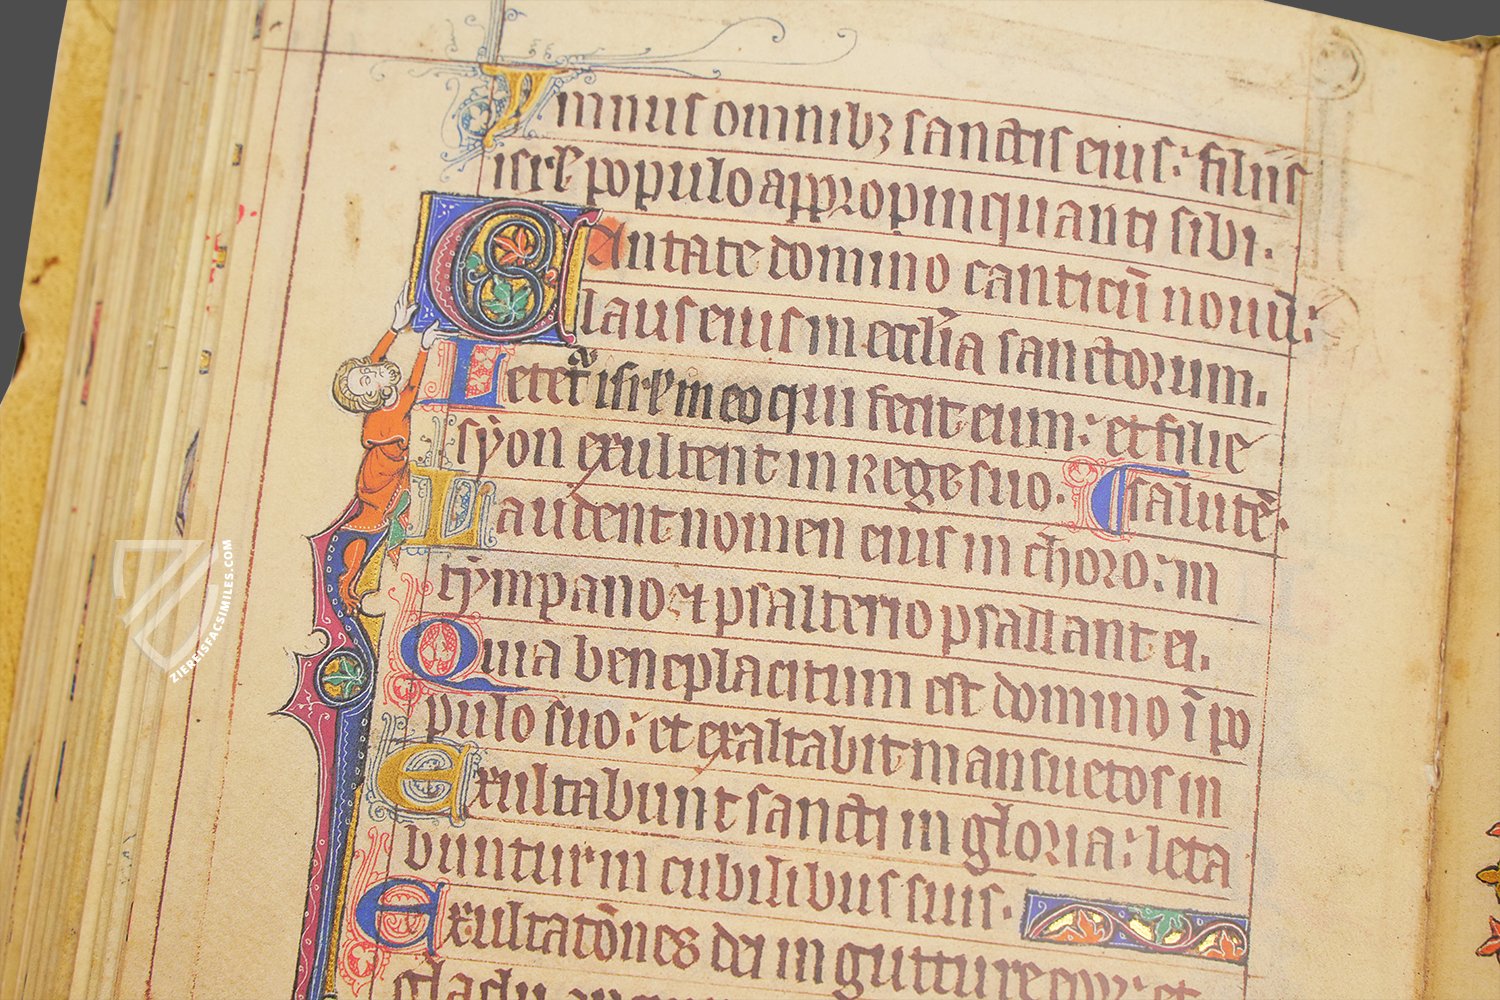 Ymnus omnibȝ sanctis eius: filiis
isrl̄ populo appropinquanti sibi.
Cantate domino canticū nouū:
laus eius in eccl̄ia sanctorum.
Letetᷣ isrl̄ in eo qui fecit eum: et filie
syon exultent in rege suo. salutē.
Laudent nomen eius in choro: in
tympano et psalterio psallant ei.
Quia beneplacitum est domino ī po
pulo suo: et exaltabit mansuetos in
Exultabunt sancti in gloria: leta
buntur in cubilibus suis.
Exultatōnes dei in gutture eorꝝ: et
ZIEREISFACSIMILES.COM